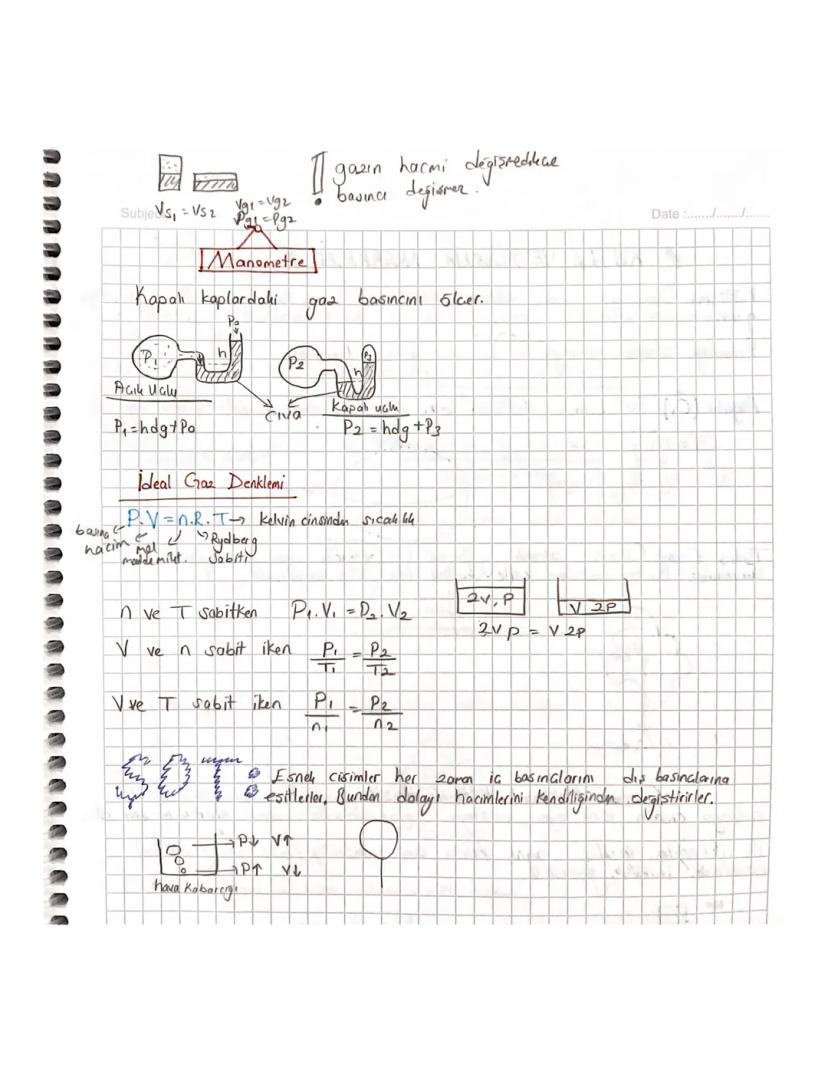 !! gazın hacmi değişmedikce
basıncı değişmez.
Vs1 = Vs2
Vg1 = Vg2
Pg1 = Pg2
Subject
Date :......./......./.......
Manometre
Kapalı kaplardaki gaz basıncını ölçer.
P0
P1 h
P2 h P3
Açık Uclu
P1 = hdg+P0
CIVA
Kapalı uclu
P2 = hdg+P3
İdeal Gaz Denklemi
P.V = n.R.T → kelvin cinsinden sıcaklık
basınç
hacim
mol
madde mikt.
Rydberg
Sabiti
n ve T sabitken P1.V1 = P2.V2
2V, P
V 2P
2V P = V 2P
V ve n sabit iken P1/T1 = P2/T2
V ve T sabit iken P1/n1 = P2/n2
Esnek cisimler her zaman iç basınçlarını dış basınçlarına
eşitlerler. Bundan dolayı hacimlerini kendiliğinden değiştirirler.
→P↓ V↑
→P↑ V↓
hava Kabarcığı